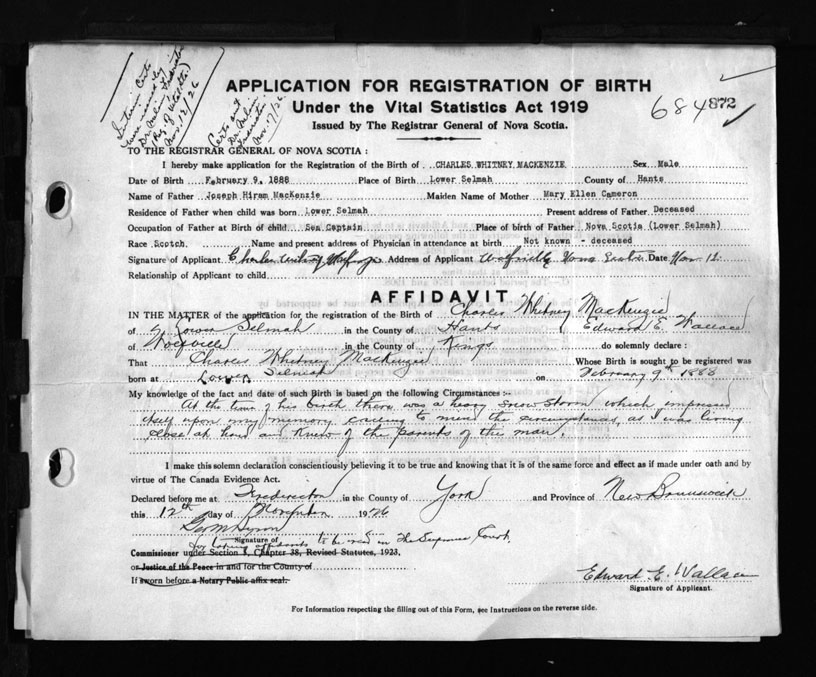 Interim Certs
Nov. 12/26
Certs out
Nov. 17/26
APPLICATION FOR REGISTRATION OF BIRTH
Under the Vital Statistics Act 1919
684 872
Issued by The Registrar General of Nova Scotia.
TO THE REGISTRAR GENERAL OF NOVA SCOTIA :
I hereby make application for the Registration of the Birth of CHARLES WHITNEY MACKENZIE Sex Male
Date of Birth February 9, 1888 Place of Birth Lower Selmah County of Hants
Name of Father Joseph Hiram MacKenzie Maiden Name of Mother Mary Ellen Cameron
Residence of Father when child was born Lower Selmah Present address of Father Deceased
Occupation of Father at Birth of child Sea Captain Place of birth of Father Nova Scotia (Lower Selmah)
Race Scotch Name and present address of Physician in attendance at birth Not known - deceased
Signature of Applicant Charles Whitney MacKenzie Address of Applicant Wolfville Nova Scotia Date Nov 12
Relationship of Applicant to child
AFFIDAVIT
IN THE MATTER of the application for the registration of the Birth of Charles Whitney MacKenzie
of Lower Selmah in the County of Hants Edward E. Wallace
of Wolfville in the County of Kings do solemnly declare :
That Charles Whitney MacKenzie Whose Birth is sought to be registered was
born at Lower Selmah on February 9th 1888
My knowledge of the fact and date of such Birth is based on the following Circumstances :-
At the time of his birth there was a heavy snow storm which impressed
itself upon my memory calling to mind the circumstances, as I was living
close at hand and knew of the parents of the man.
I make this solemn declaration conscientiously believing it to be true and knowing that it is of the same force and effect as if made under oath and by
virtue of The Canada Evidence Act.
Declared before me at Fredericton in the County of York and Province of New Brunswick
this 12th day of November 1926
Signature of
for taking affidavits to be used in The Supreme Court
Commissioner under Section 1, Chapter 38, Revised Statutes, 1923,
or Justice of the Peace in and for the County of
If sworn before a Notary Public affix seal.
Edward E. Wallace
Signature of Applicant.
For Information respecting the filling out of this Form, see Instructions on the reverse side.